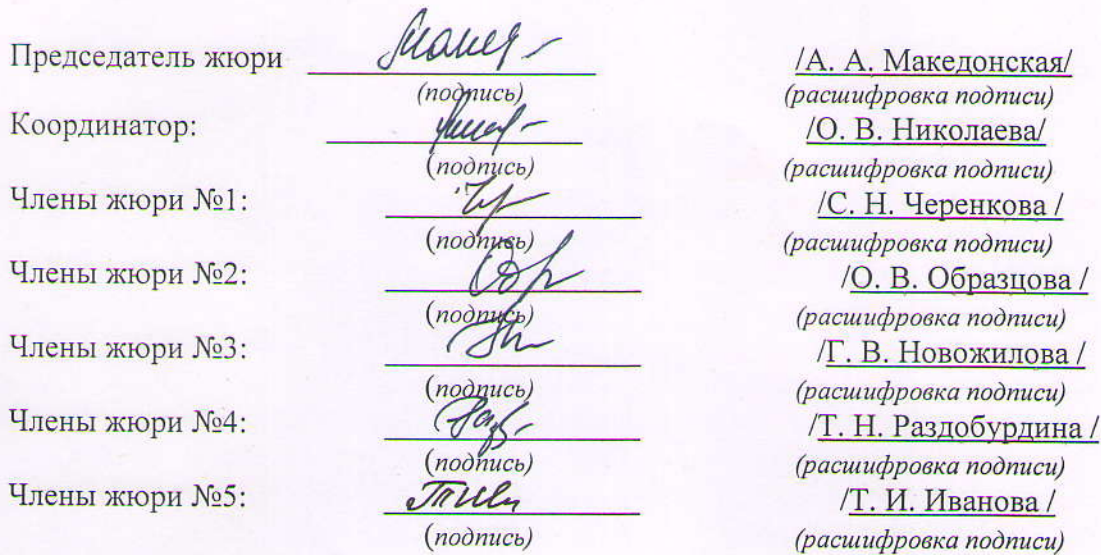 Председатель жюри /А. А. Македонская/
(подпись) (расшифровка подписи)
Координатор: /О. В. Николаева/
(подпись) (расшифровка подписи)
Члены жюри №1: /С. Н. Черенкова /
(подпись) (расшифровка подписи)
Члены жюри №2: /О. В. Образцова /
(подпись) (расшифровка подписи)
Члены жюри №3: /Г. В. Новожилова /
(подпись) (расшифровка подписи)
Члены жюри №4: /Т. Н. Раздобурдина /
(подпись) (расшифровка подписи)
Члены жюри №5: /Т. И. Иванова /
(подпись) (расшифровка подписи)